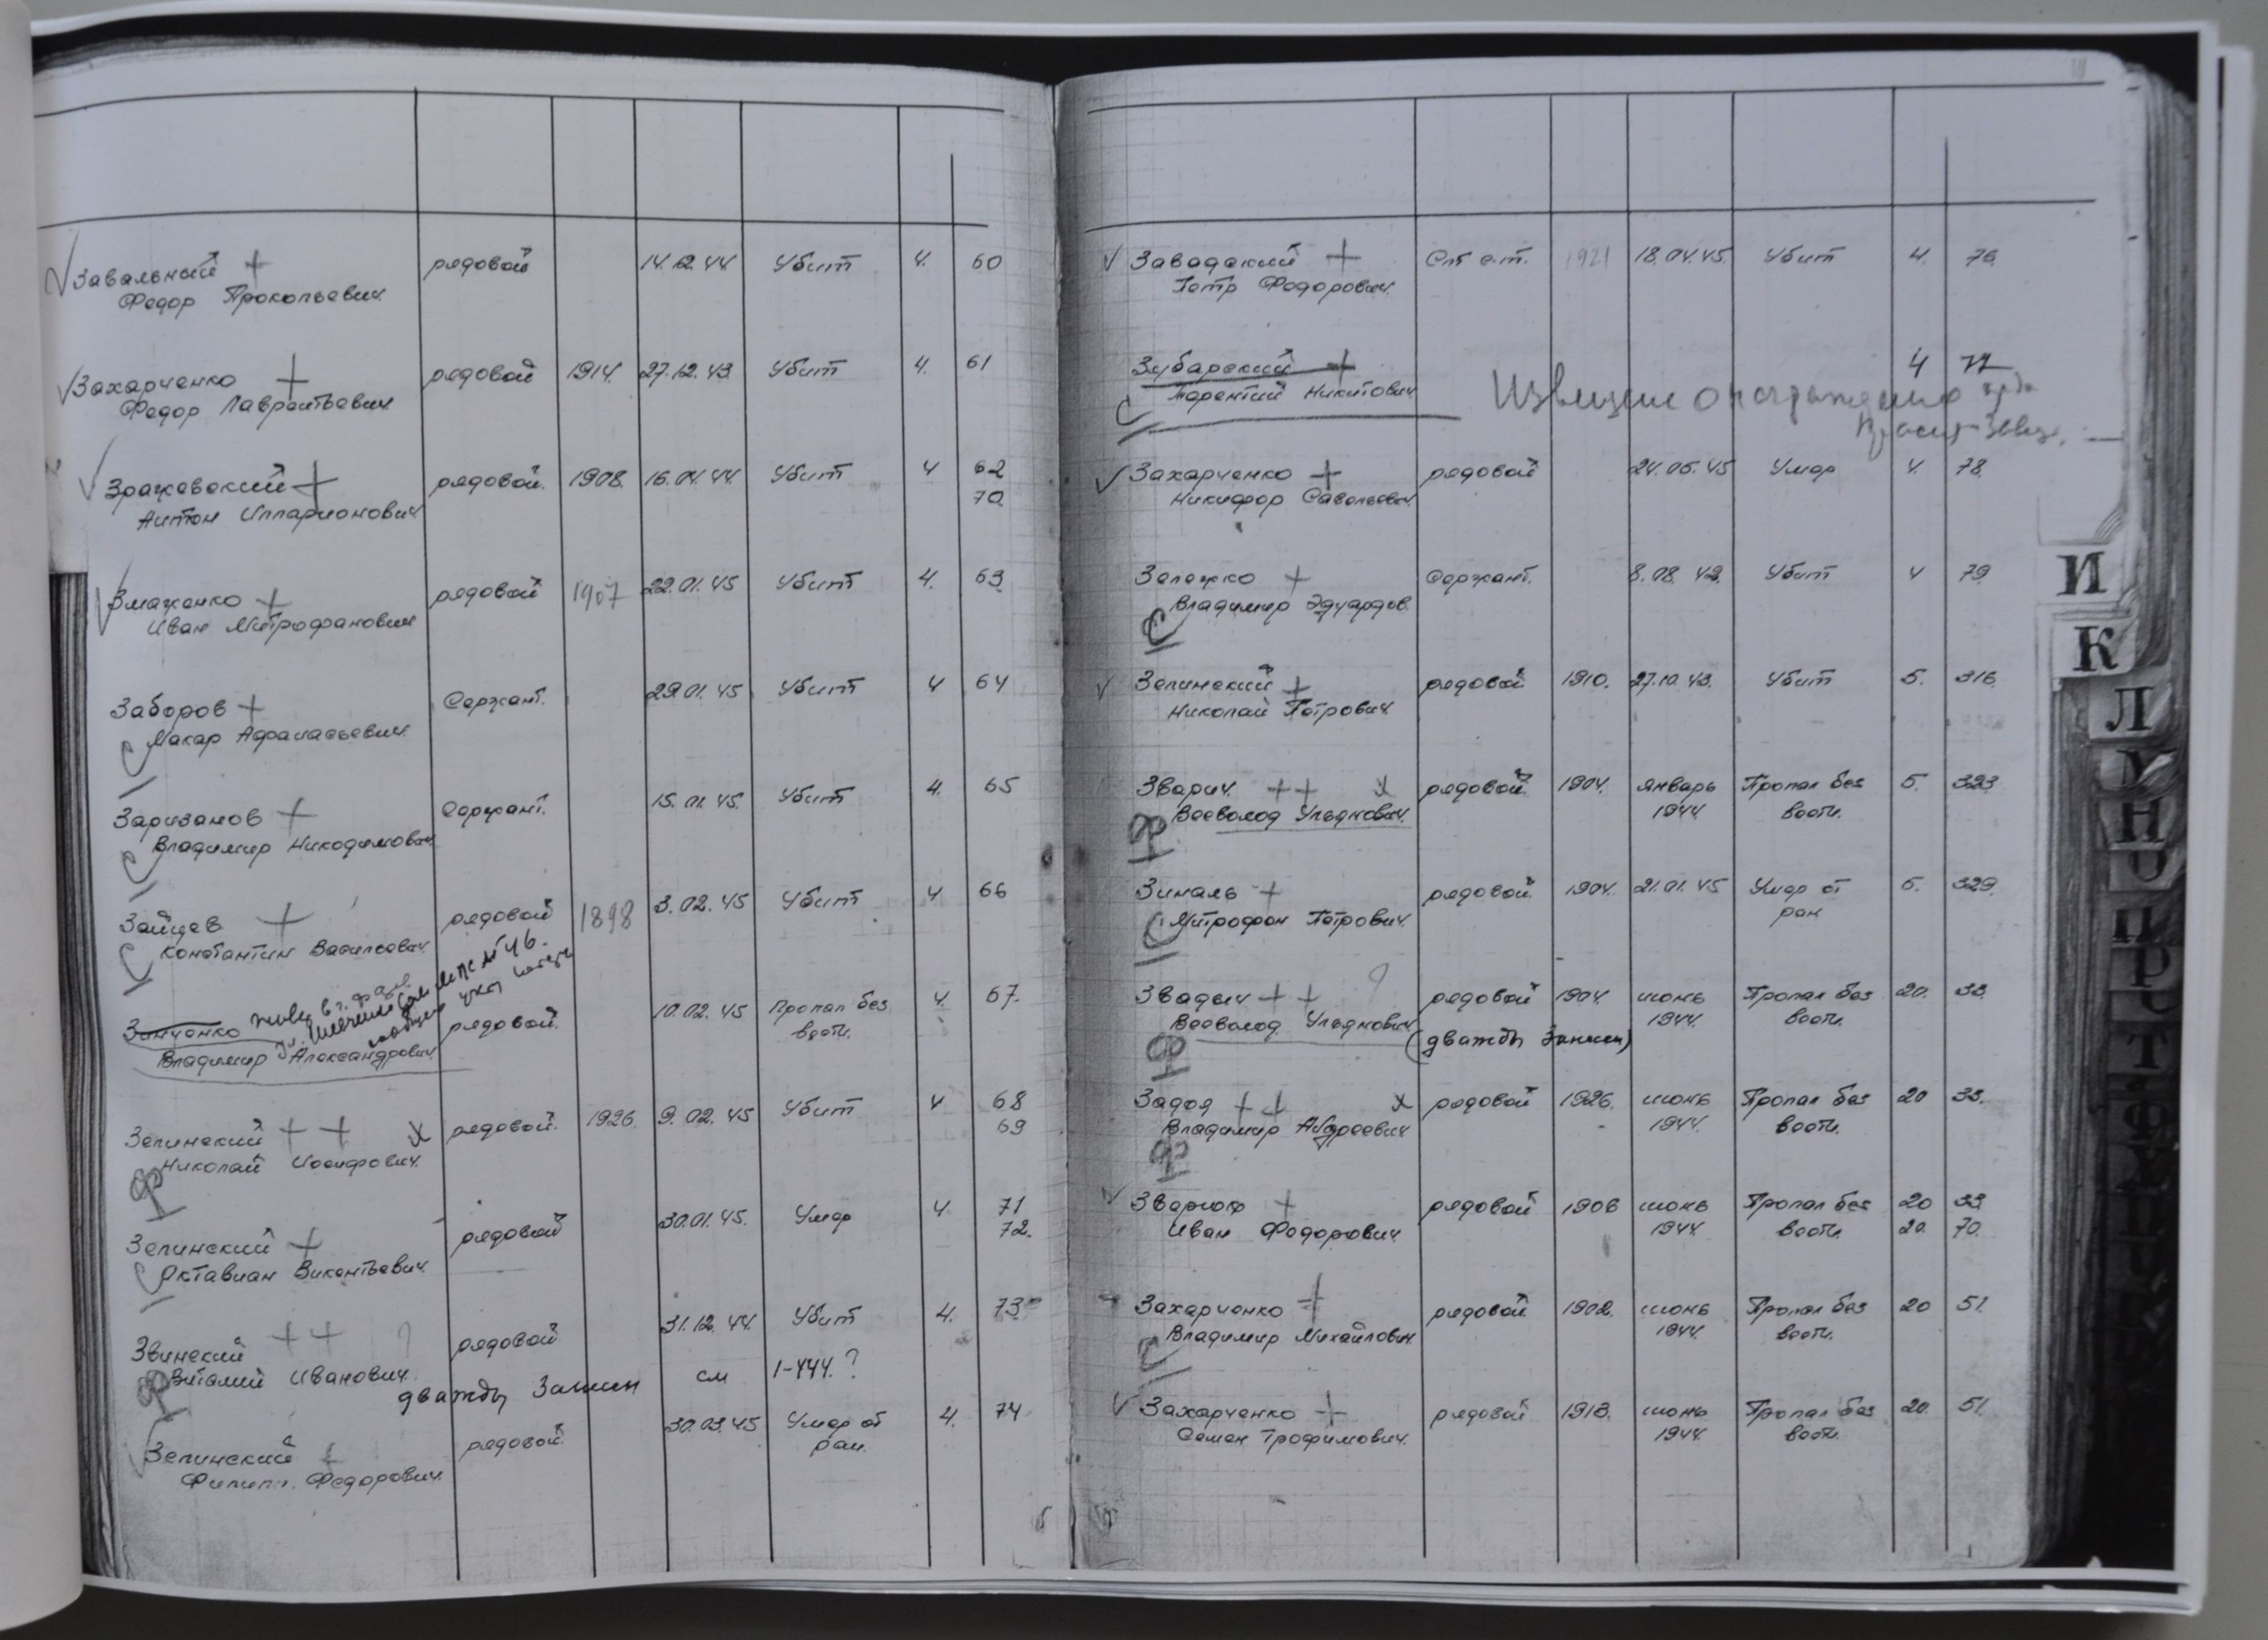 Завальный + рядовой 14.12.44. Убит 4. 60
Федор Прокопьевич
Захарченко + рядовой 1914. 27.12.43. Убит 4. 61
Федор Лаврентьевич
Зражевский + рядовой. 1908. 16.04.44. Убит 4 62
Антон Илларионович 70
Змаженко + рядовой 1907 22.01.45 Убит 4. 63
Иван Митрофанович
Заборов + Сержант. 29.01.45 Убит 4 64
Макар Афанасьевич
Заризанов + Сержант. 15.01.45. Убит 4. 65
Владимир Никодимович
Зайцев + рядовой 1898 3.02.45 Убит 4 66
Константин Васильевич
Зинченко рядовой. 10.02.45 Пропал без 4. 67.
Владимир Александрович вести.
Зелинский + + х рядовой. 1926. 9.02.45 Убит 4 68
Николай Иосифович. 69
Ф
Зелинский + рядовой 30.01.45. Умер 4. 71
Октавиан Викентьевич 72.
Звинский + + ? рядовой 31.12.44. Убит 4. 73
Виталий Иванович см 1-444. ?
Ф дважды Записан
Зелинский + рядовой 30.03.45 Умер от 4. 74
Филипп. Федорович ран.
Завадский + Ст. с-т. 1921 18.04.45. Убит 4. 76.
Петр Федорович.
Зубарский + 4 77
Терентий Никитович Извещение о награждении орд.
Красн. Звезд.
Захарченко + рядовой 24.05.45 Умер 4. 78.
Никифор Савельевич
Зележко + Сержант. 8.08.43. Убит 4 79.
Владимир Эдуардов.
Зелинский + рядовой 1910. 27.10.43. Убит 5. 316.
Николай Петрович
Зварич. + + х рядовой 1904. январь Пропал без 5. 323
Всеволод Ульянович. 1944 вести.
Ф
Зиналь + рядовой 1904. 21.01.45 Умер от 5. 329.
Митрофан Петрович. ран
Звадыч + + ? рядовой 1904 июнь Пропал без 20. 33.
Всеволод Ульянович 1944. вести.
Ф (дважды Записан)
Задоя + + х рядовой 1926. июнь Пропал без 20 33.
Владимир Андреевич 1944 вести.
Ф
Зварюк + рядовой 1906 июнь Пропал без 20 33
Иван Федорович. 1944. вести. 20. 70.
Захарченко + рядовой 1902. июнь Пропал без 20 51.
Владимир Михайлович 1944. вести.
Захарченко + рядовой 1913. июнь Пропал без 20. 51.
Семен Трофимович. 1944. вести.
И
К
Л
М
Н
О
П
Р
С
Т